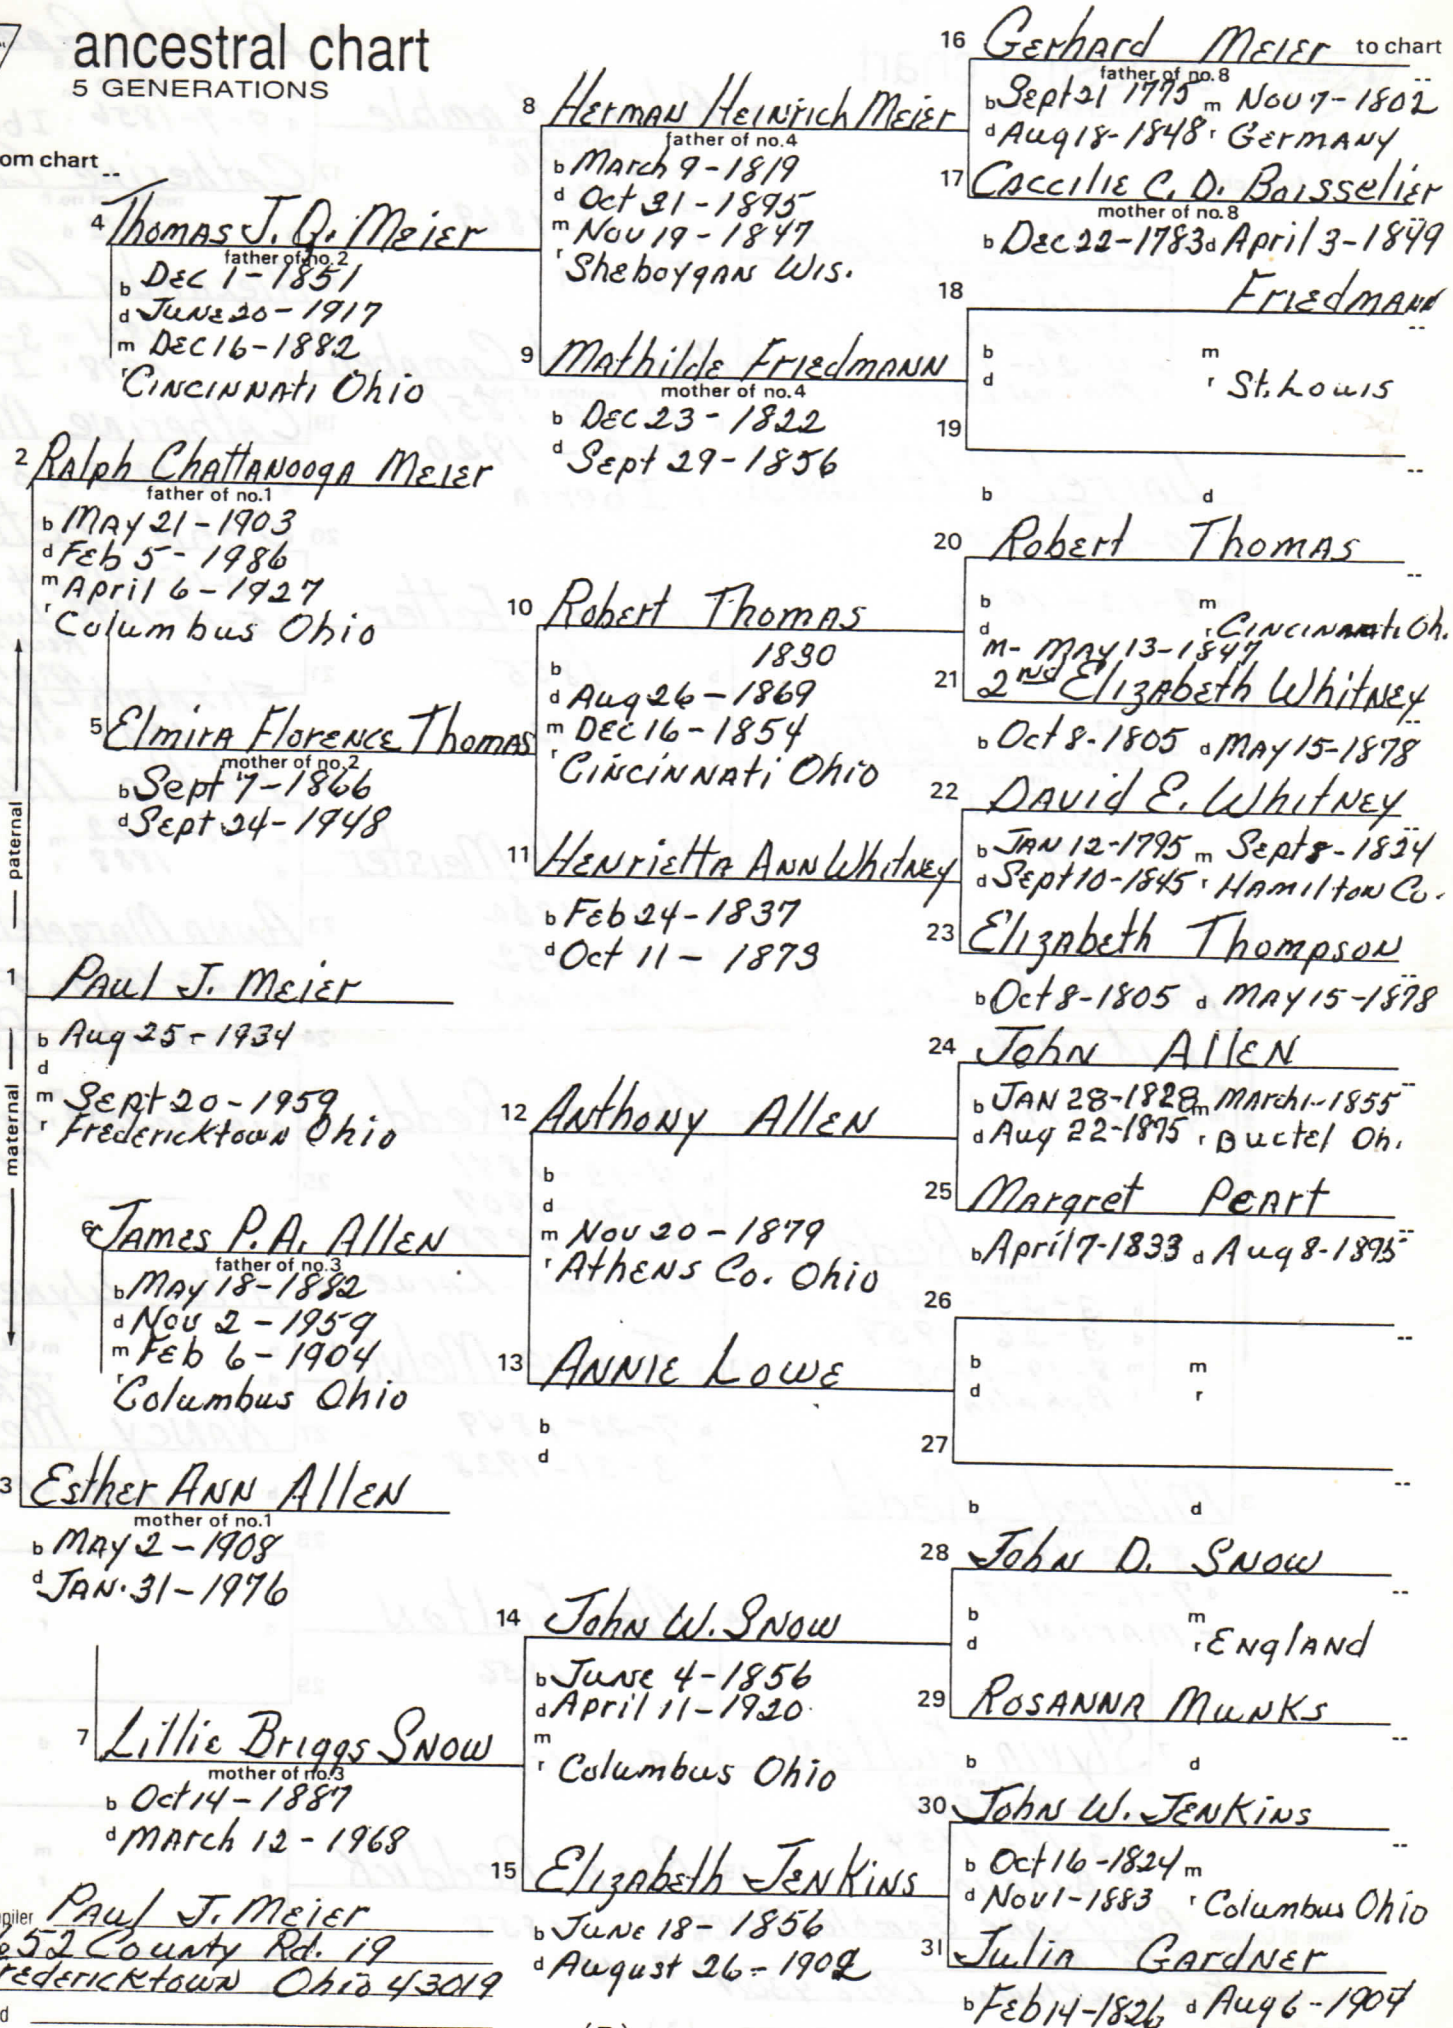 ancestral chart
5 GENERATIONS
om chart
--
1 Paul J. Meier
b Aug 25-1934
d
m Sept 20-1959
r Fredericktown Ohio
paternal
maternal
2 Ralph Chattanooga Meier
father of no.1
b May 21-1903
d Feb 5-1986
m April 6-1927
r Columbus Ohio
3 Esther Ann Allen
mother of no.1
b May 2-1908
d Jan. 31-1976
4 Thomas J. Q. Meier
father of no. 2
b Dec 1-1851
d June 20-1917
m Dec 16-1882
r Cincinnati Ohio
5 Elmira Florence Thomas
mother of no.2
b Sept 7-1866
d Sept 24-1948
6 James P.A. Allen
father of no.3
b May 18-1882
d Nov 2-1959
m Feb 6-1904
r Columbus Ohio
7 Lillie Briggs Snow
mother of no.3
b Oct 14-1887
d March 12-1968
8 Herman Heinrich Meier
father of no.4
b March 9-1819
d Oct 31-1895
m Nov 19-1847
r Sheboygan Wis.
9 Mathilde Friedmann
mother of no.4
b Dec 23-1822
d Sept 29-1856
10 Robert Thomas
b 1830
d Aug 26-1869
m Dec 16-1854
r Cincinnati Ohio
11 Henrietta Ann Whitney
b Feb 24-1837
d Oct 11-1873
12 Anthony Allen
b
d
m Nov 20-1879
r Athens Co. Ohio
13 Annie Lowe
b
d
14 John W. Snow
b June 4-1856
d April 11-1920
m
r Columbus Ohio
15 Elizabeth Jenkins
b June 18-1856
d August 26-1902
16 Gerhard Meier to chart
father of no.8 --
b Sept 21 1775 m Nov 7-1802
d Aug 18-1848 r Germany
17 Caccilie C. D. Boisselier
mother of no.8 --
b Dec 22-1783 d April 3-1849
18 Friedmann
--
b m
d r St. Louis
19
--
b d
20 Robert Thomas
--
b m
d r Cincinnati Oh.
m- May 13-1847
21 2nd Elizabeth Whitney
--
b Oct 8-1805 d May 15-1878
22 David E. Whitney
--
b Jan 12-1795 m Sept 8-1824
d Sept 10-1845 r Hamilton Co.
23 Elizabeth Thompson
--
b Oct 8-1805 d May 15-1878
24 John Allen
--
b Jan 28-1828 m March 1-1855
d Aug 22-1895 r Buctel Oh.
25 Margret Peart
--
b April 7-1833 d Aug 8-1895
26
--
b m
d r
27
--
b d
28 John D. Snow
--
b m
d r England
29 Rosanna Munks
--
b d
30 John W. Jenkins
--
b Oct 16-1824 m
d Nov 1-1883 r Columbus Ohio
31 Julia Gardner
b Feb 14-1826 d Aug 6-1904
piler Paul J. Meier
652 County Rd. 19
redericktown Ohio 43019
d